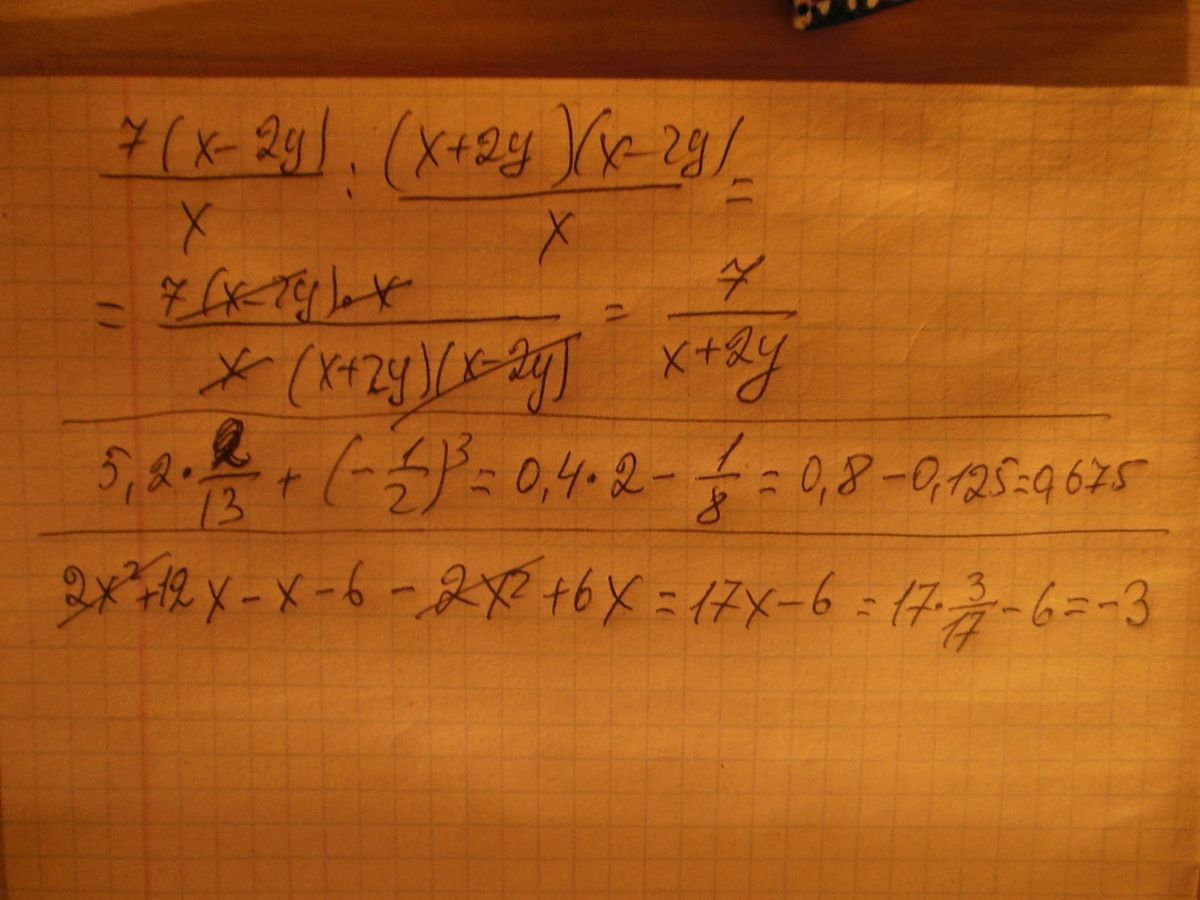 7(x-2y)/x : (x+2y)(x-2y)/x =
= 7(x-2y)·x / x(x+2y)(x-2y) = 7/(x+2y)
5,2·2/13 + (-1/2)³ = 0,4·2 - 1/8 = 0,8 - 0,125 = 0,675
2x²+12x-x-6-2x²+6x = 17x-6 = 17·3/17-6 = -3